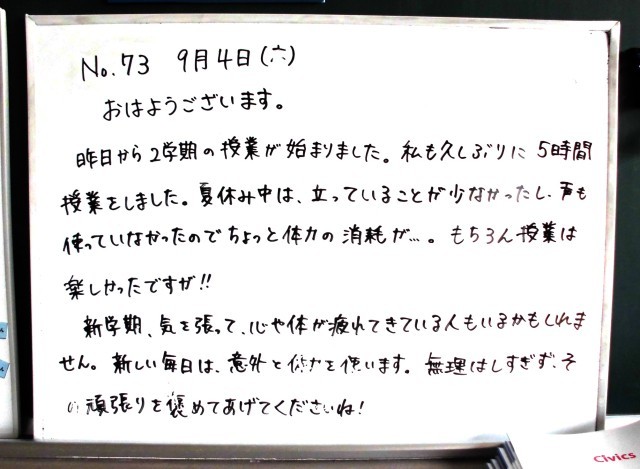 No.73 9月4日(六)
おはようございます。
昨日から2学期の授業が始まりました。私も久しぶりに5時間
授業をしました。夏休み中は、立っていることが少なかったし、声も
使っていなかったのでちょっと体力の消耗が…。もちろん授業は
楽しかったですが!!
新学期、気を張って、心や体が疲れてきている人もいるかもしれま
せん。新しい毎日は、意外と体力を使います。無理はしすぎず、そ
の頑張りを褒めてあげてくださいね!
Civics